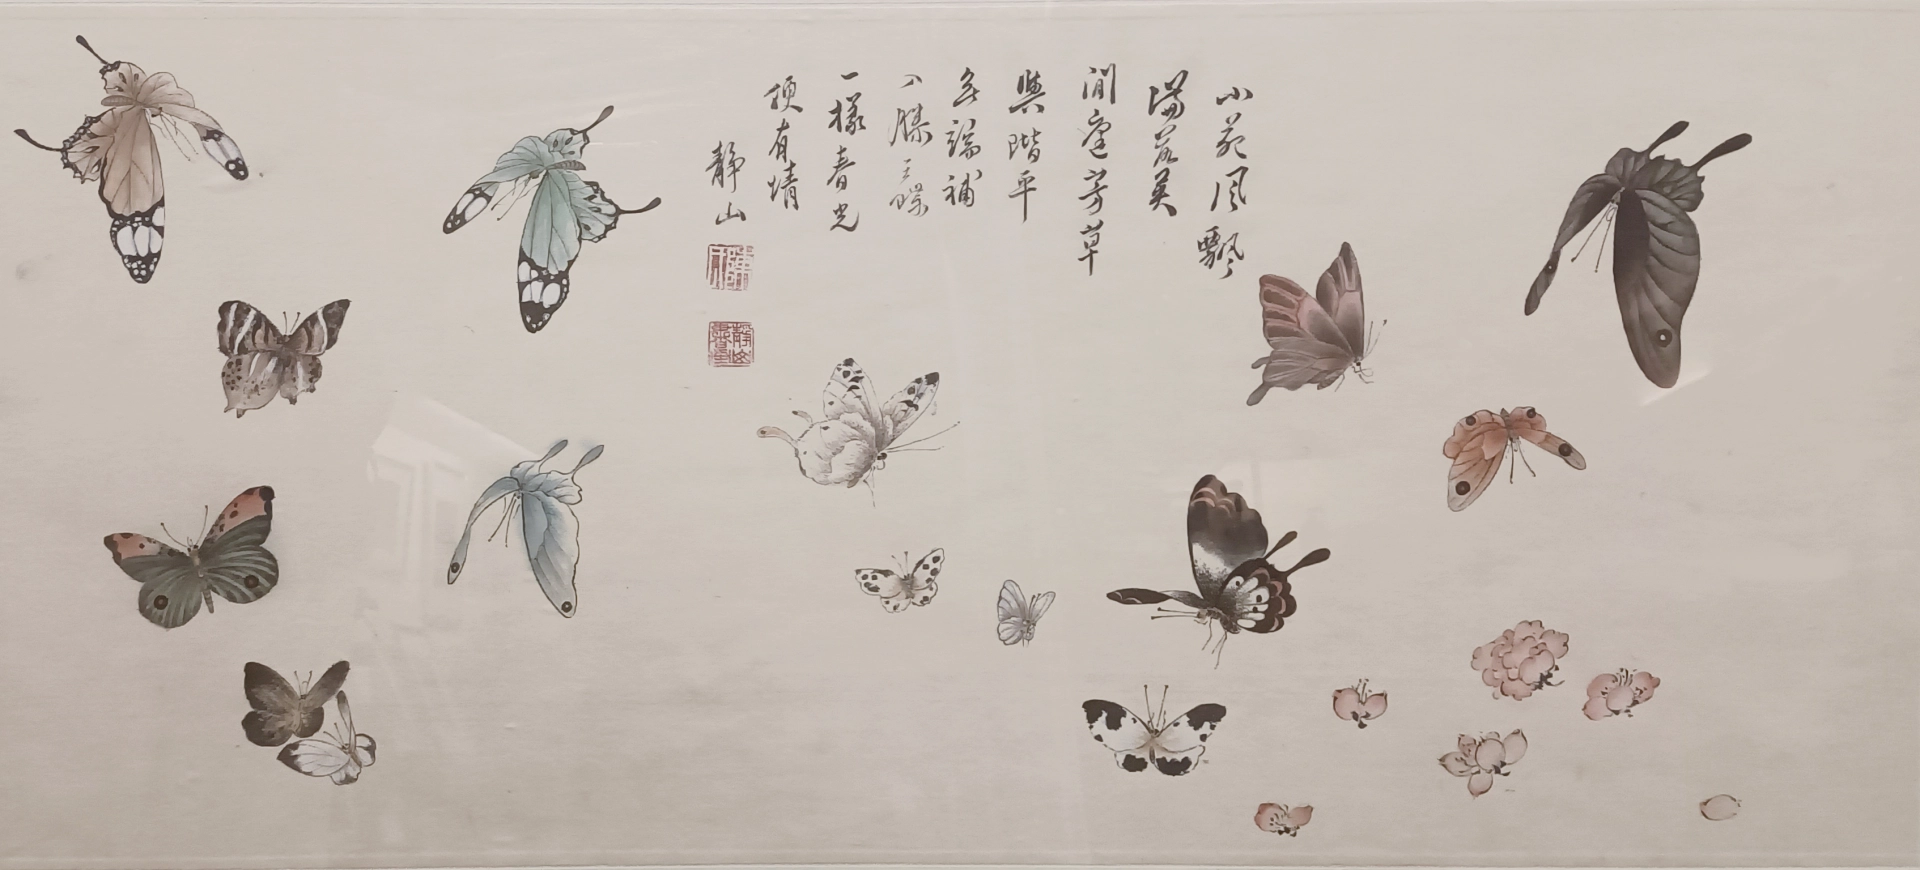 小苑風飄
滿落英
閒庭芳草
與階平
無端補
入滕王蝶
一樣春光
便有情
靜山